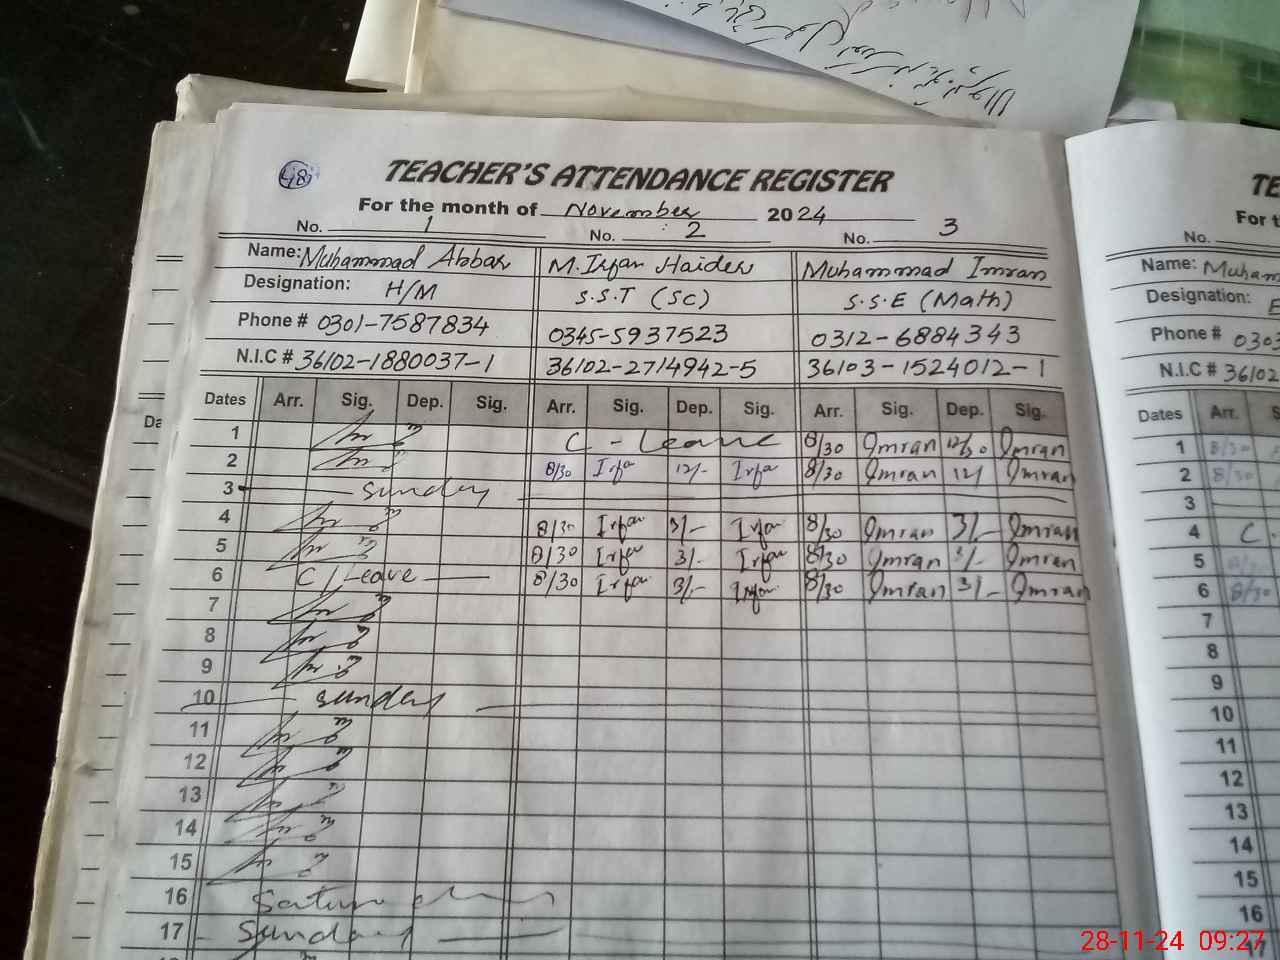 TEACHER'S ATTENDANCE REGISTER
For the month of November 2024
No. 1 No. 2 No. 3
Name: Muhammad Abbas M. Irfan Haider Muhammad Imran
Designation: H/M S.S.T (SC) S.S.E (Math)
Phone # 0301-7587834 0345-5937523 0312-6884343
N.I.C # 36102-1880037-1 36102-2714942-5 36103-1524012-1
Dates Arr. Sig. Dep. Sig. Arr. Sig. Dep. Sig. Arr. Sig. Dep. Sig.
1 C-Leave 8/30 Imran 12/30 Imran
2 8/30 Irfan 12/- Irfan 8/30 Imran 12/ Imran
3 Sunday
4 8/30 Irfan 3/- Irfan 8/30 Imran 3/- Imran
5 8/30 Irfan 3/- Irfan 8/30 Imran 3/- Imran
6 C/Leave 8/30 Irfan 3/- Irfan 8/30 Imran 3/- Imran
7
8
9
10 Sunday
11
12
13
14
15
16
17 Sunday
TE
For t
No.
Name: Muham
Designation: E
Phone # 0303
N.I.C # 36102
Dates Arr. S
1 8/30
2 8/30
3
4 C.
5
6 8/30
7
8
9
10
11
12
13
14
15
16
17
Da
28-11-24 09:27